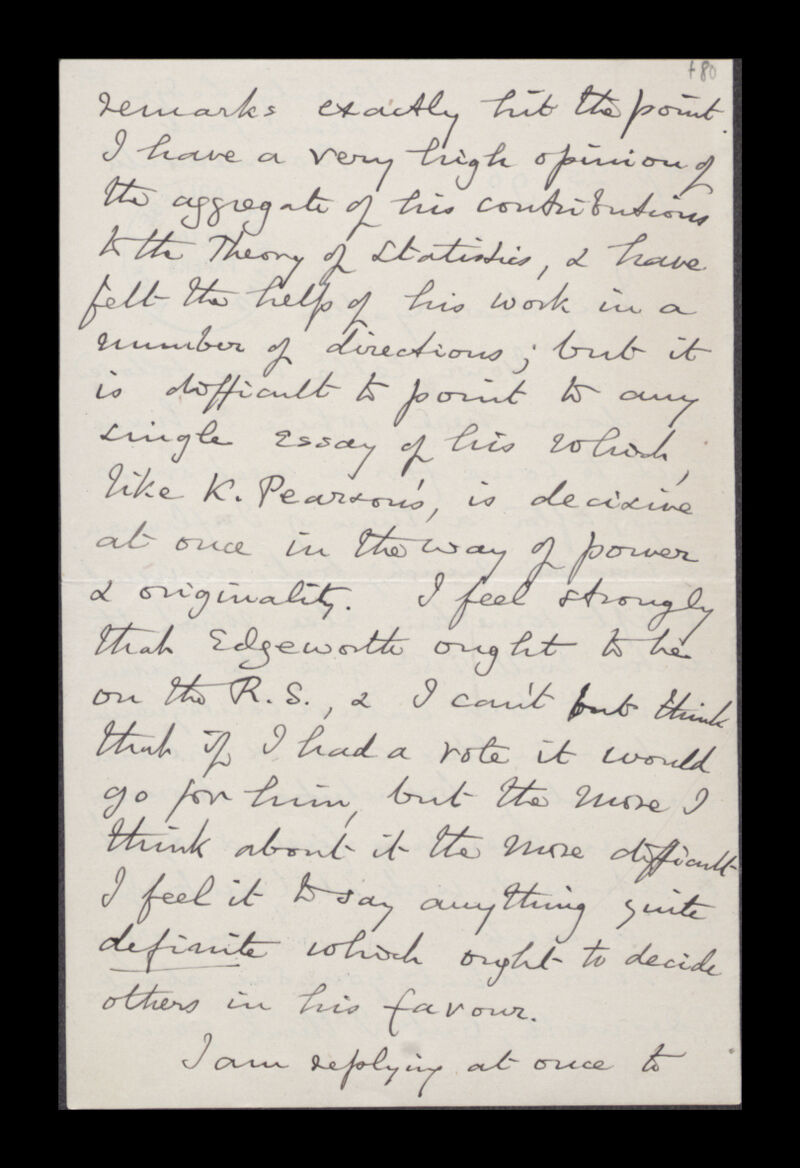 f80
remarks exactly hit the point.
I have a very high opinion of
the aggregate of his contributions
to the Theory of Statistics, & have
felt the help of his work in a
number of directions; but it
is difficult to point to any
single essay of his which,
like K. Pearson's, is decisive
at once in the way of power
& originality. I feel strongly
that Edgeworth ought to be
on the R.S., & I can't but think
that if I had a vote it would
go for him, but the more I
think about it the more difficult
I feel it to say anything quite
definite which ought to decide
others in his favour.
I am replying at once to